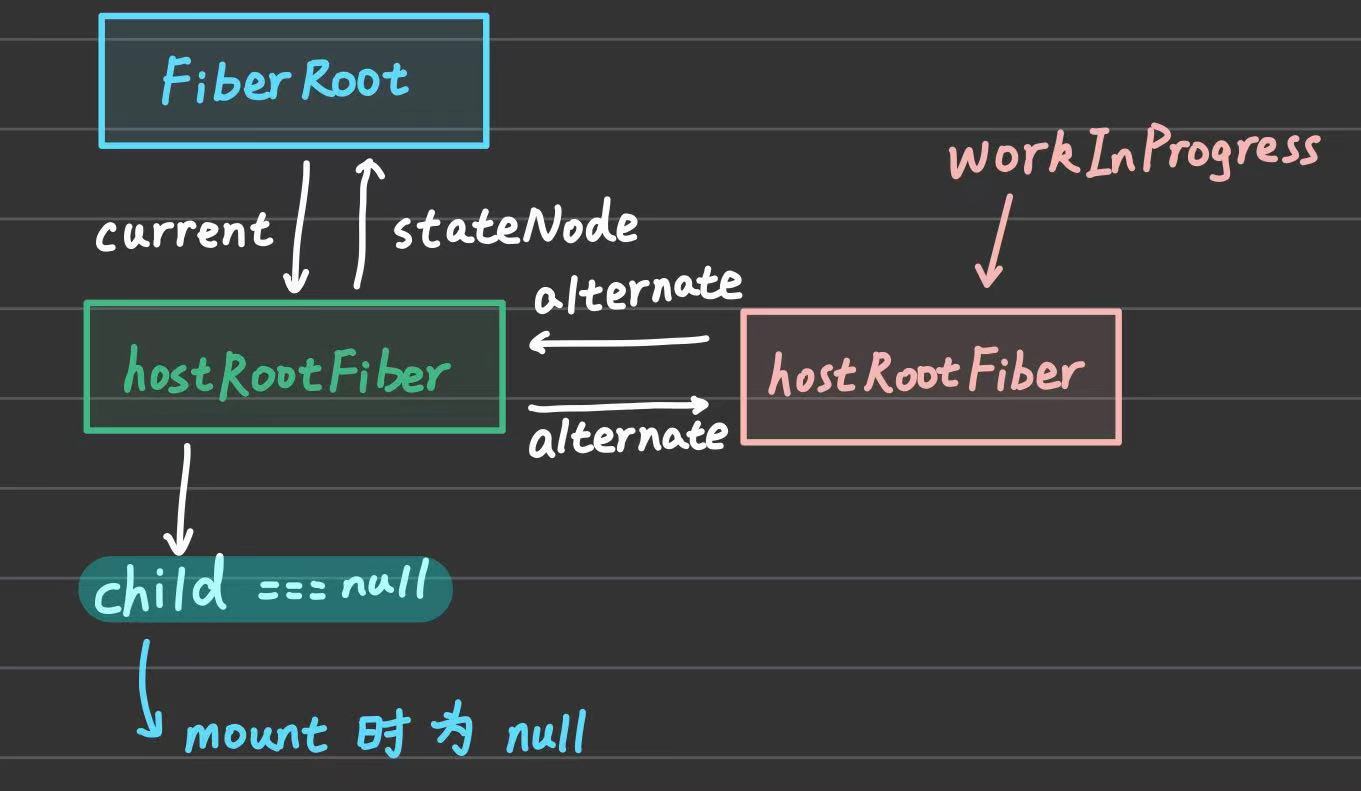 FiberRoot
workInProgress
current
stateNode
alternate
hostRootFiber
hostRootFiber
alternate
child === null
mount 时为 null